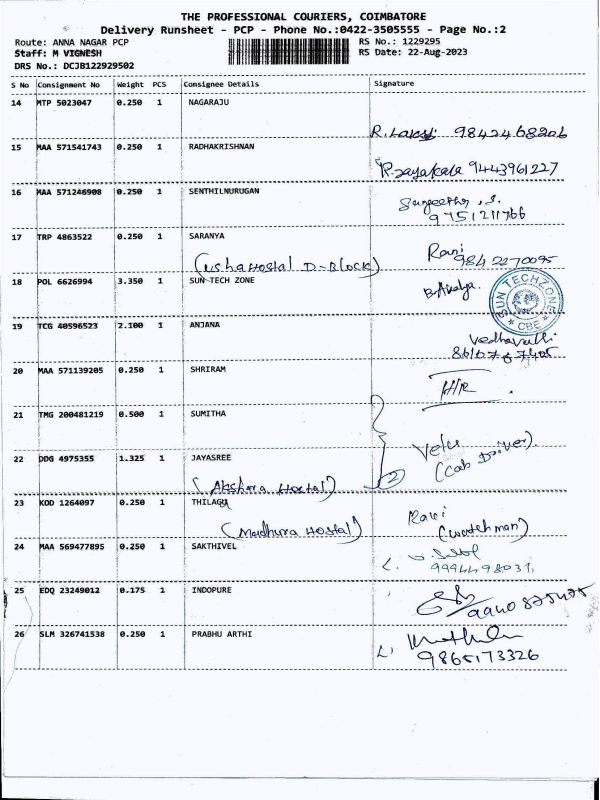 THE PROFESSIONAL COURIERS, COIMBATORE
Delivery Runsheet - PCP - Phone No.:0422-3505555 - Page No.:2
Route: ANNA NAGAR PCP RS No.: 1229295
Staff: M VIGNESH RS Date: 22-Aug-2023
DRS No.: DCJB122929502
S No Consignment No Weight PCS Consignee Details Signature
14 MTP 5023047 0.250 1 NAGARAJU
R. 9842468206
15 MAA 571541743 0.250 1 RADHAKRISHNAN
R. 9443961227
16 MAA 571246908 0.250 1 SENTHILNURUGAN
9751211766
17 TRP 4863522 0.250 1 SARANYA
Rani
(Usha Hostal D-Block) 9842270095
18 POL 6626994 3.350 1 SUN TECH ZONE
SUN TECHZONE
* CBE *
19 TCG 40596523 2.100 1 ANJANA
Vedhavalli
20 MAA 571139205 0.250 1 SHRIRAM
21 TMG 200481219 0.500 1 SUMITHA
Velu
22 DDG 4975355 1.325 1 JAYASREE
(Cab Driver).
(Akshara Hostal)
23 KOD 1264097 0.250 1 THILAGA
Ravi
(Madhura Hostal) (watchman)
24 MAA 569477895 0.250 1 SAKTHIVEL
9994498031
25 EDQ 23249012 0.175 1 INDOPURE
26 SLM 326741538 0.250 1 PRABHU ARTHI
9865173326